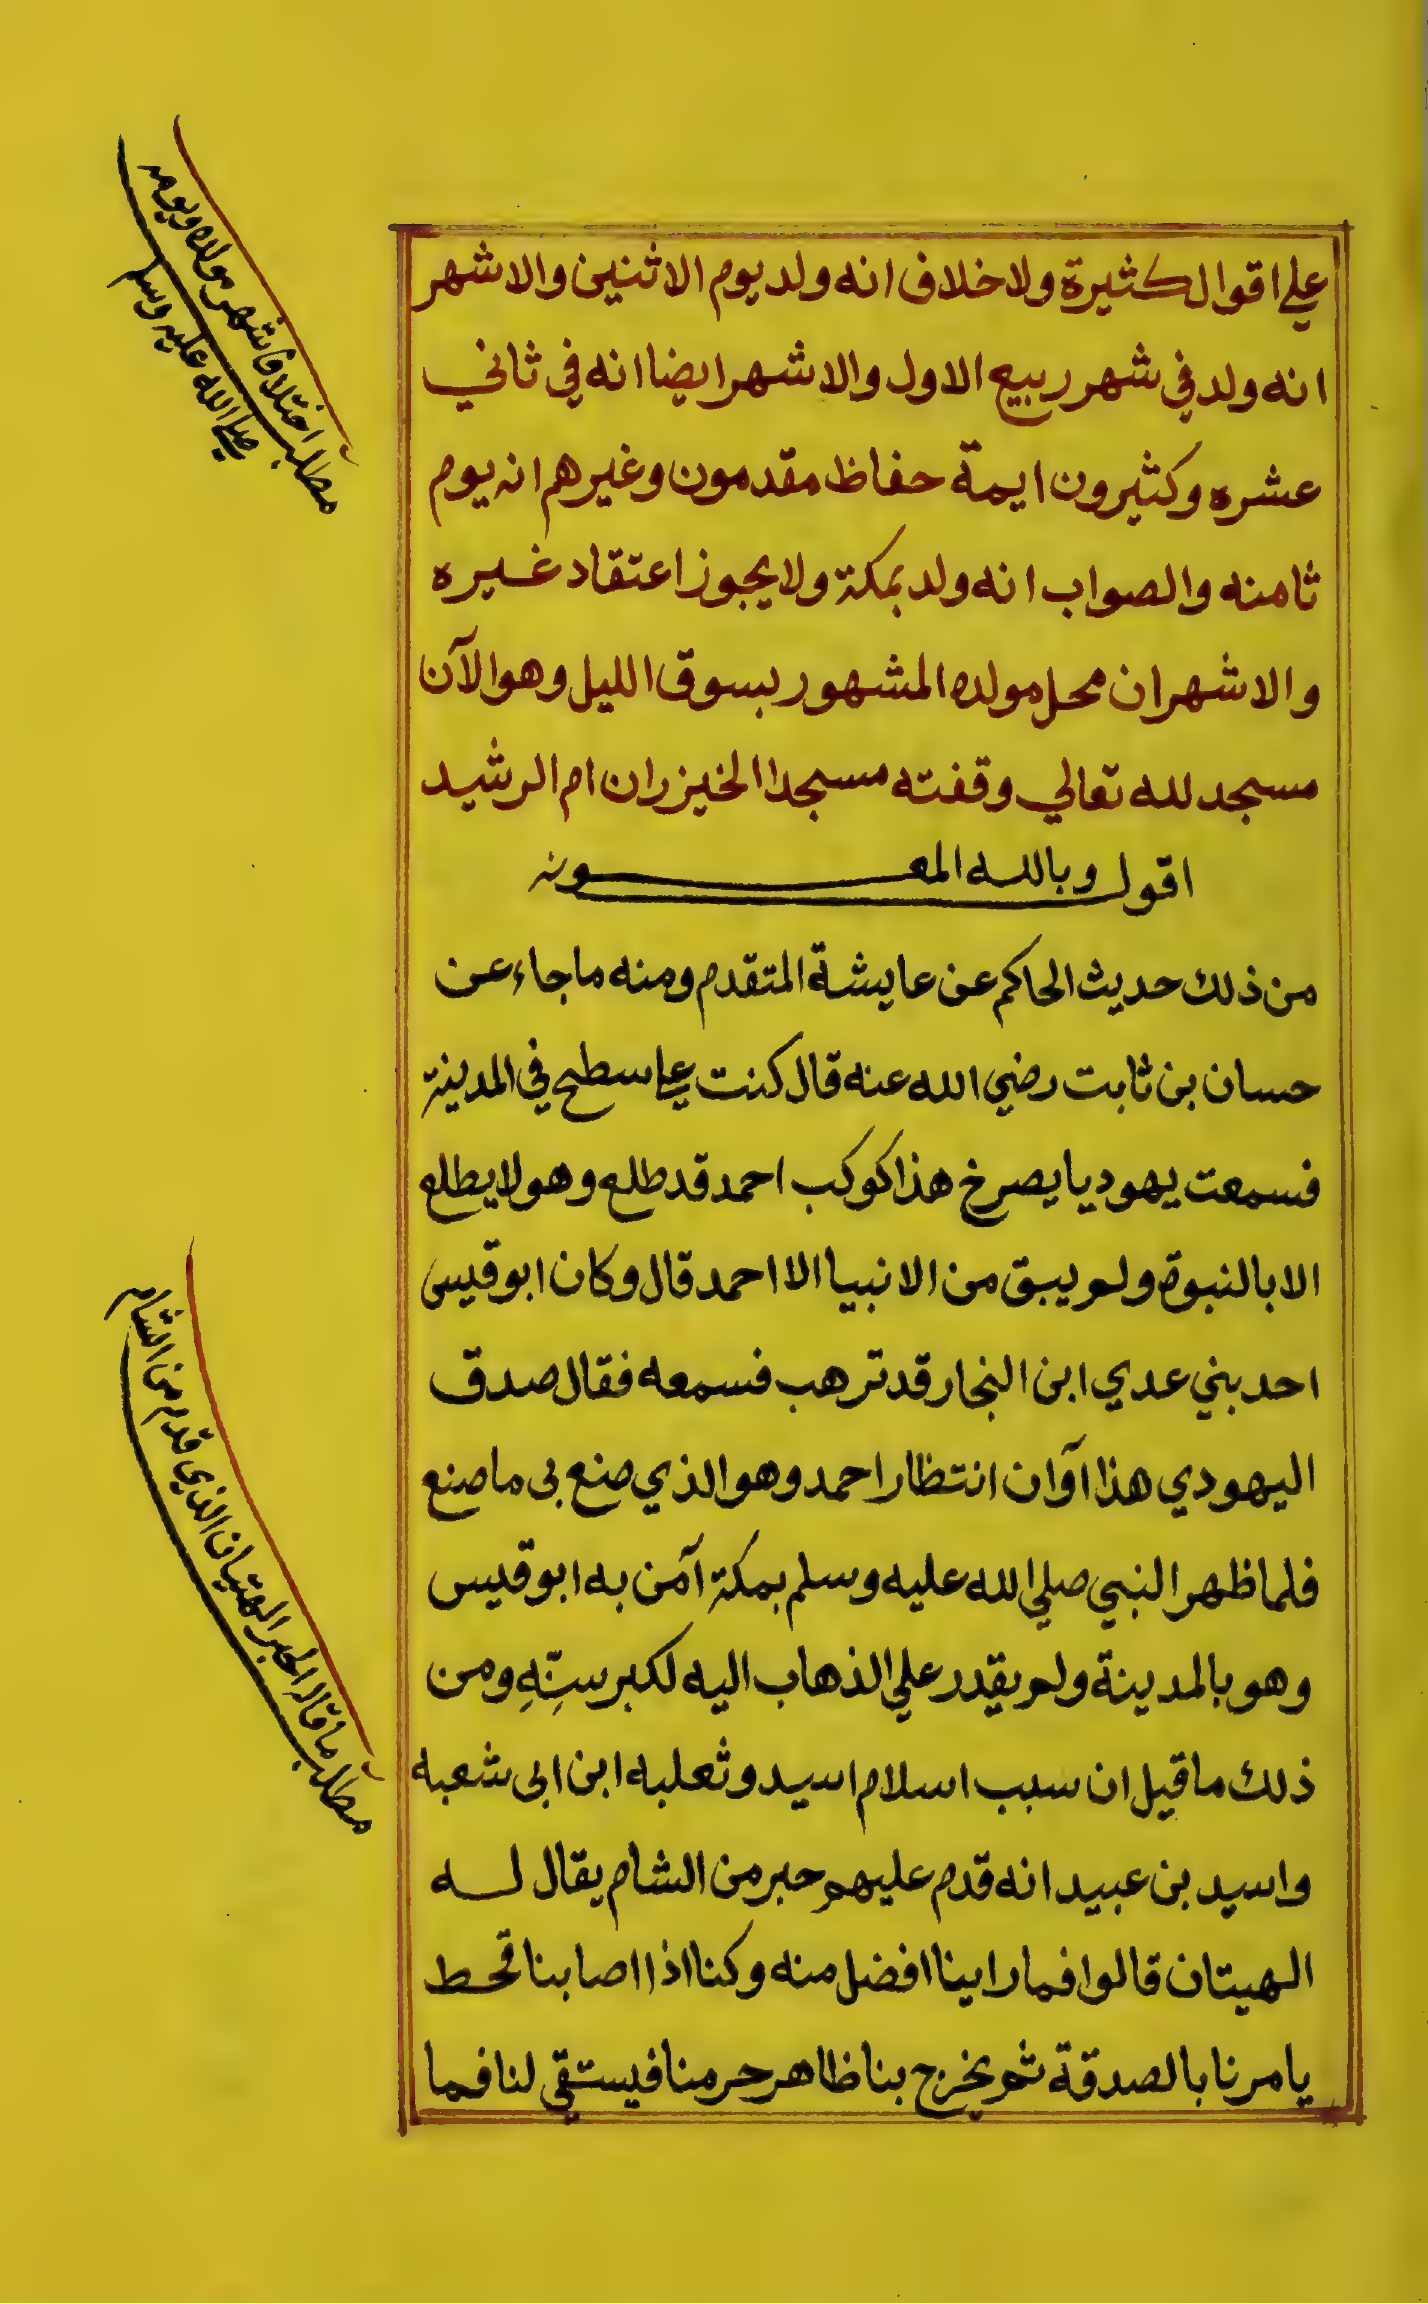 علي اقوال كثيرة ولا خلاف انه ولد يوم الاثنين والاشهر
انه ولد في شهر ربيع الاول والاشهر ايضا انه في ثاني
عشره وكثيرون ايمة حفاظ مقدمون وغيرهم انه يوم
ثامنه والصواب انه ولد بمكة ولا يجوز اعتقاد غيره
والاشهر ان محل مولده المشهور بسوق الليل وهو الآن
مسجد لله تعالي وقفته مسجدا الخيزران ام الرشيد
اقول وبالله المعونه
من ذلك حديث الحاكم عن عايشة المتقدم ومنه ما جاء عن
حسان بن ثابت رضي الله عنه قال كنت علي سطح في المدينة
فسمعت يهوديا يصرخ هذا كوكب احمد قد طلع وهو لا يطلع
الا بالنبوة ولم يبق من الانبيا الا احمد قال وكان ابو قيس
احد بني عدي ابن النجار قد ترهب فسمعه فقال صدق
اليهودي هذا اآوان انتظار احمد وهو الذي صنع بى ما صنع
فلما ظهر النبي صلي الله عليه وسلم بمكة آمن به ابو قيس
وهو بالمدينة ولم يقدر علي الذهاب اليه لكبر سنّه ومن
ذلك ما قيل ان سبب اسلام اسيد وثعلبه ابن ابى شعبه
واسيد بن عبيد انه قدم عليهم حبر من الشام يقال له
الهيتان قالوا فما راينا افضل منه وكنا اذا اصابنا قحط
يامرنا بالصدقة ثم يخرج بنا ظاهر حرمنا فيستقي لنا فما
مطلب اختلاف شهر مولده ويومه
صلي الله عليه وسلم
مطلب ما قاله الحبر الهتيان الذي قدم من الشام